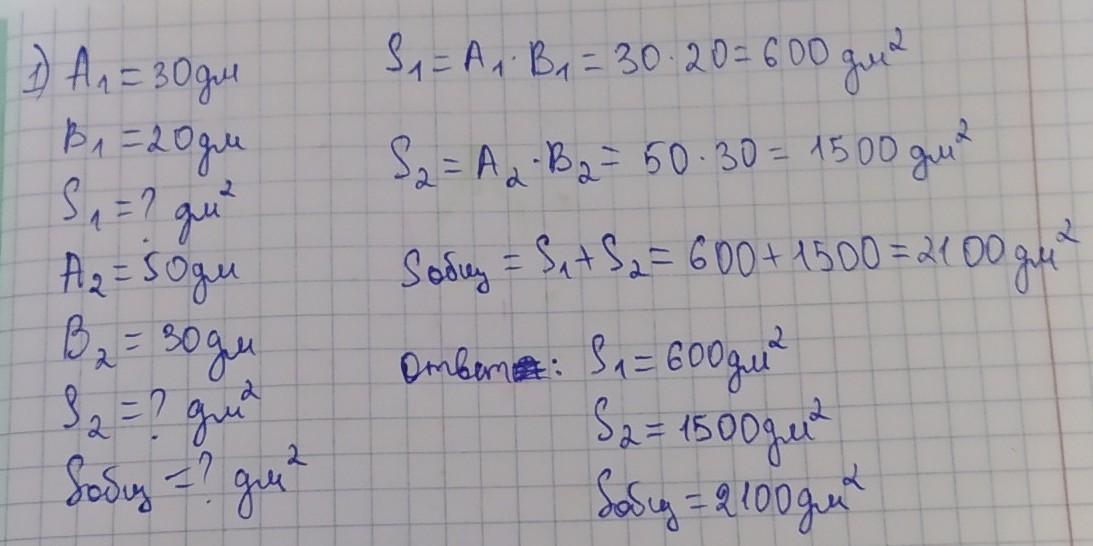 1) A₁ = 30 дм
B₁ = 20 дм
S₁ = ? дм²
A₂ = 50 дм
B₂ = 30 дм
S₂ = ? дм²
Sобщ = ? дм²
S₁ = A₁ · B₁ = 30 · 20 = 600 дм²
S₂ = A₂ · B₂ = 50 · 30 = 1500 дм²
Sобщ = S₁ + S₂ = 600 + 1500 = 2100 дм²
Ответ: S₁ = 600 дм²
S₂ = 1500 дм²
Sобщ = 2100 дм²